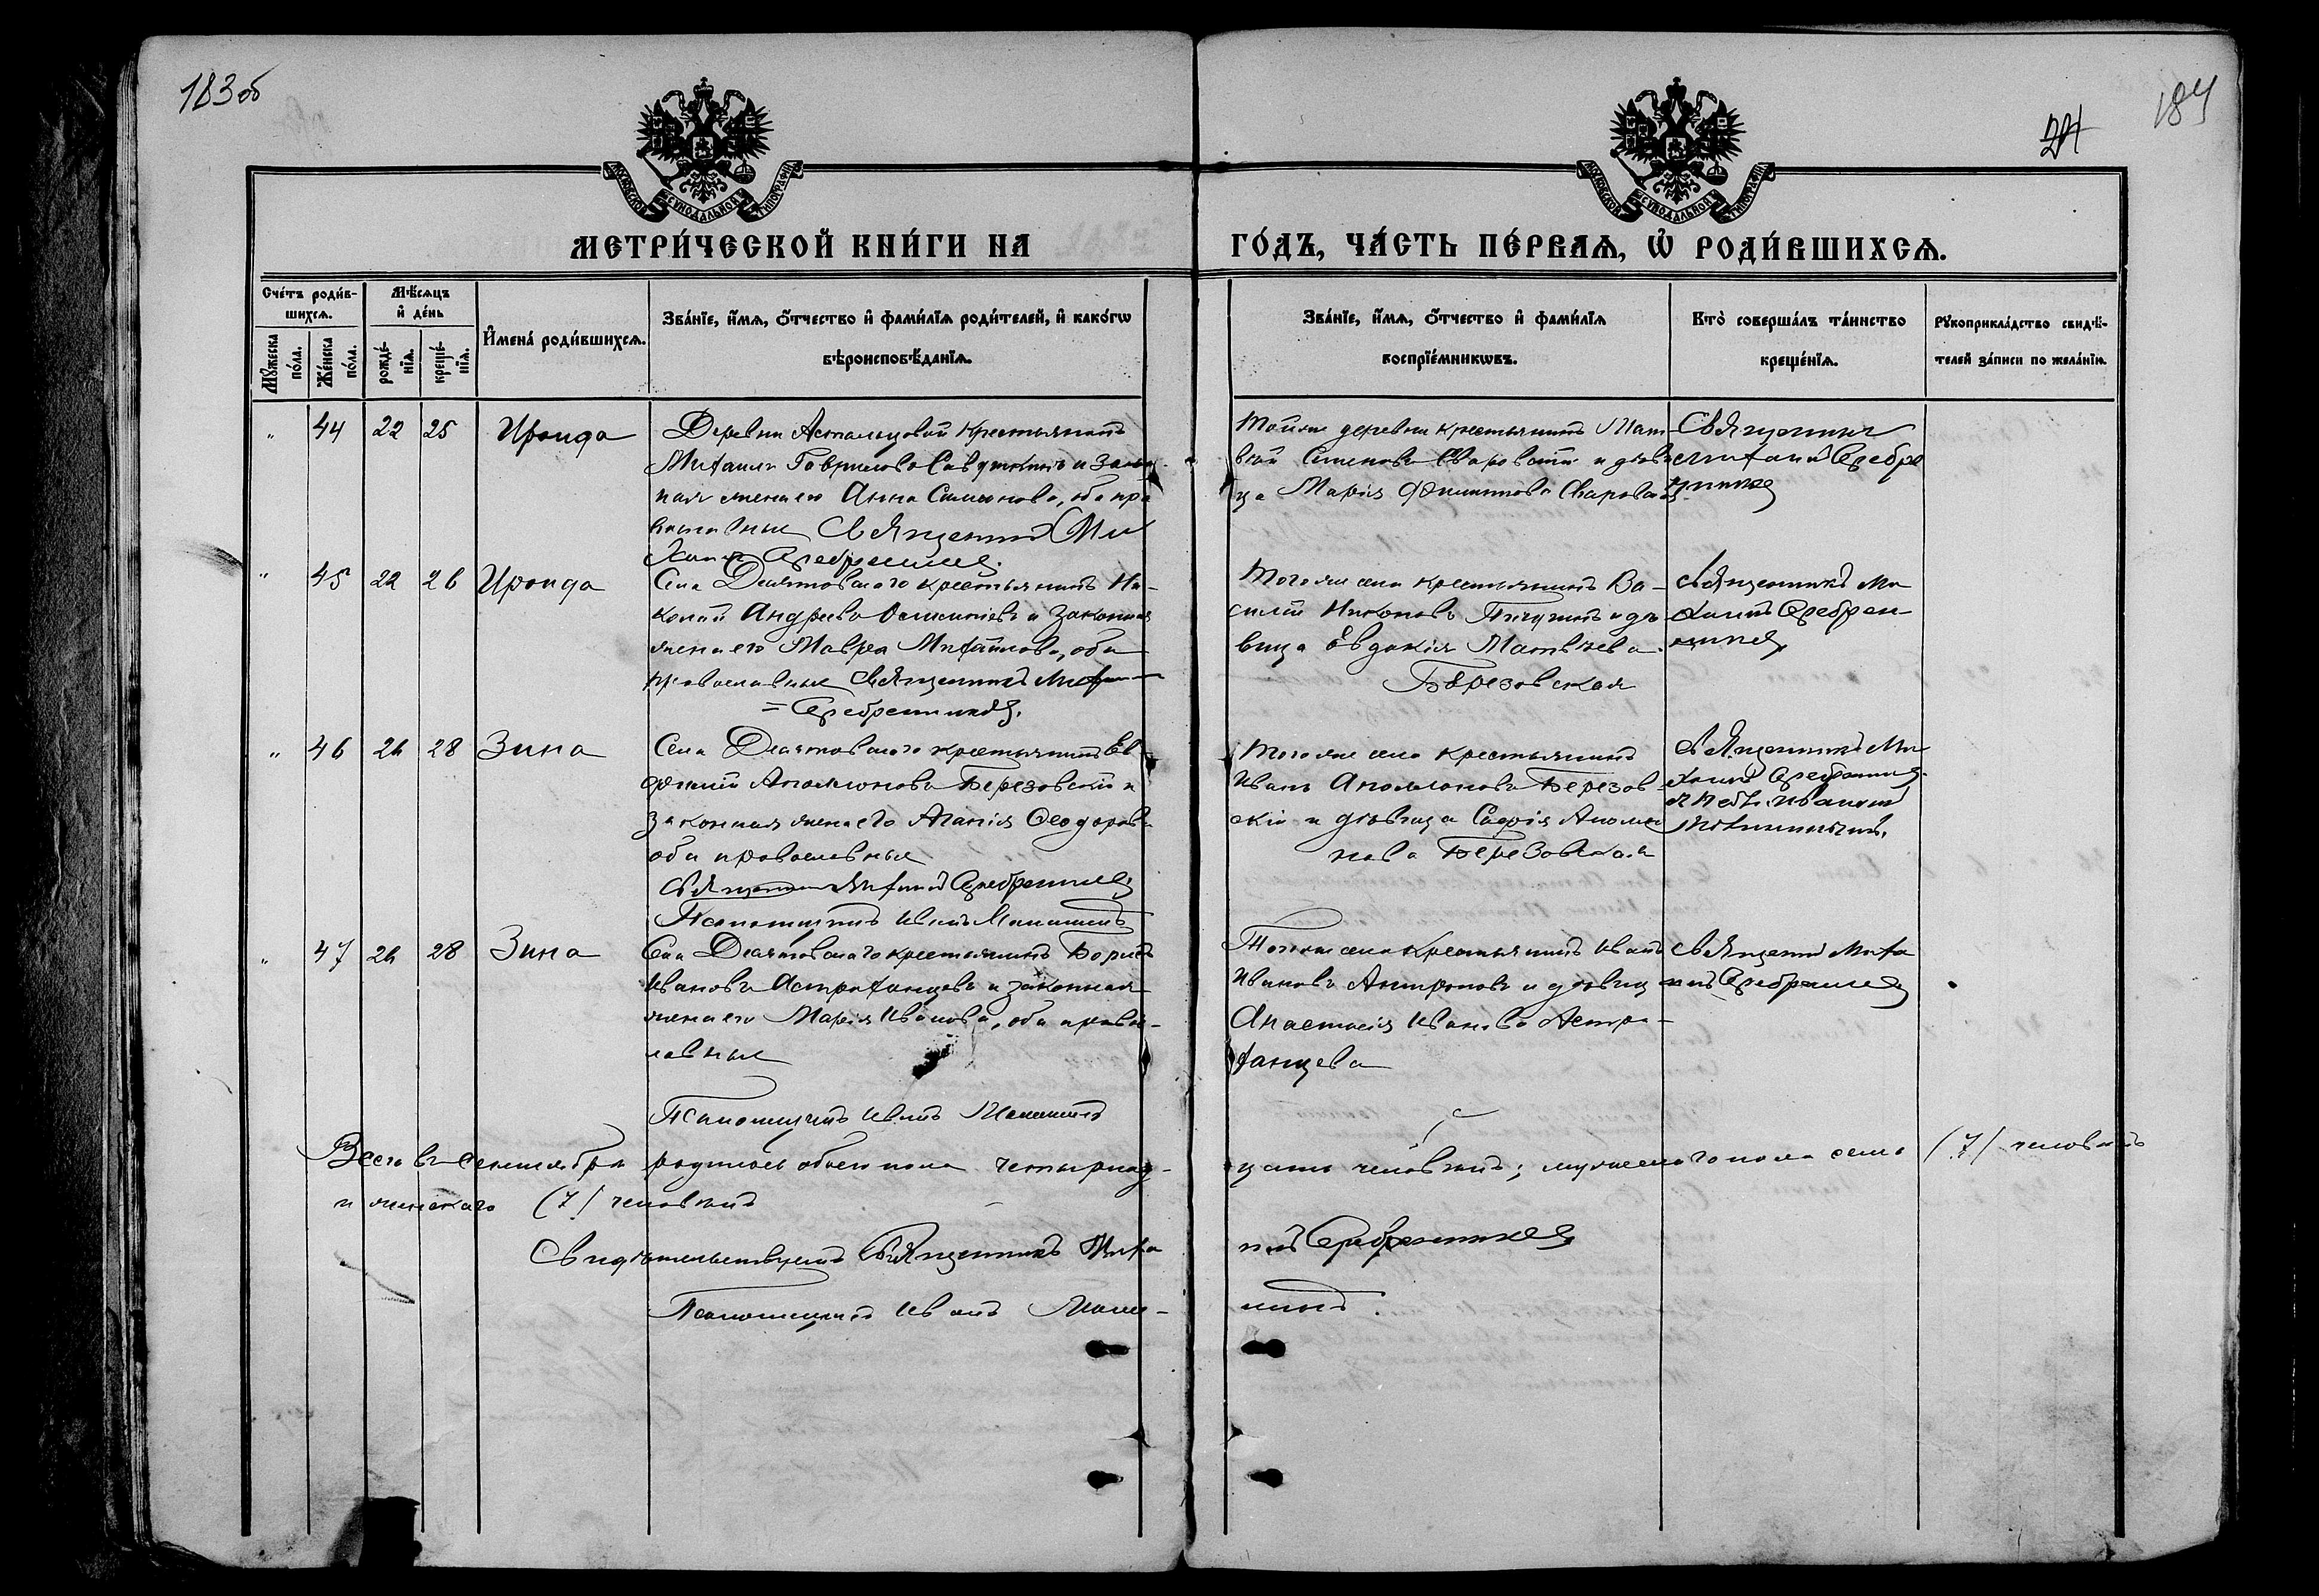 183 об
184
МОСКОВСКОЙ СѴНОДАЛЬНОЙ ТИПОГРАФІИ
МОСКОВСКОЙ СѴНОДАЛЬНОЙ ТИПОГРАФІИ
МЕТРИ́ЧЕСКОЙ КНИ́ГИ НА ГО́ДЪ, ЧА́СТЬ ПЕ́РВАѦ, Ѡ҆ РОДИ́ВШИХСѦ.
Сче́тъ роди́в-
шихсѧ.
Мꙋ́жеска
по́ла.
Же́нска
по́ла.
Мѣ́сѧцъ
и҆ де́нь
рожде́-
нїѧ.
креще́-
нїѧ.
И҆мена̀ роди́вшихсѧ.
Зва́нїе, и҆́мѧ, ѻ҆́тчество и҆ фами́лїѧ роди́телей, и҆ како́гѡ
вѣроисповѣ́данїѧ.
Зва́нїе, и҆́мѧ, ѻ҆́тчество и҆ фами́лїѧ
воспрїе́мникѡвъ.
Кто̀ соверша́лъ та́инство
креще́нїѧ.
Рꙋкоприкла́дство свидѣ́-
телей за́писи по жела́нїю.
" 44 22 25 Ираида
Деревни крестьянинъ
Михаилъ Гаврилова и Закон
ная жена его Анна Симонова, оба пра
вославные Священникъ Ми
хаилъ Серебренниковъ.
Тойже деревни крестьянинъ Мат
вѣй Семеновъ и дѣви
ца Марія Филиппова
Священникъ
Михаилъ Серебре
нниковъ
" 45 22 26 Ираида
Села крестьянинъ Ни-
колай Андреевъ и законная
жена его Мавра Михайлова, оба
православные Священникъ Михаилъ
= Серебренниковъ.
Того же села крестьянинъ Ва-
силій Никоновъ и дѣ-
вица Евдокія Матвѣева
Березовская
Священникъ Ми
хаилъ Серебрен-
никовъ
" 46 26 28 Зина
Села крестьянинъ Ев
фимій Аполлоновъ Березовскій и
законная жена его Агапія Феодорова
оба православные
Священникъ Михаилъ Серебренниковъ
Псаломщикъ Иванъ
Того же села крестьянинъ
Иванъ Аполлоновъ Березов-
скій и дѣвица Софія Аполло
нова Березовская
Священникъ Ми
хаилъ Серебренник.
" 47 26 28 Зина
Села крестьянинъ Борисъ
Ивановъ Астраханцевъ и законная
жена его Марія Иванова, оба правос-
лавные
Псаломщикъ Иванъ
Тогоже села крестьянинъ Иванъ
Ивановъ и дѣвица
Анастасія Иванова Астра-
ханцева
Священникъ Миха
илъ Серебренниковъ
Всего въ Сентябрѣ родилось обоего пола четырнад-
цать человѣкъ; мужескаго пола семь (7) человѣкъ
и женскаго (7) человѣкъ
Свидѣтельствуетъ Священникъ Миха
илъ Серебренниковъ
Псаломщикъ Иванъ